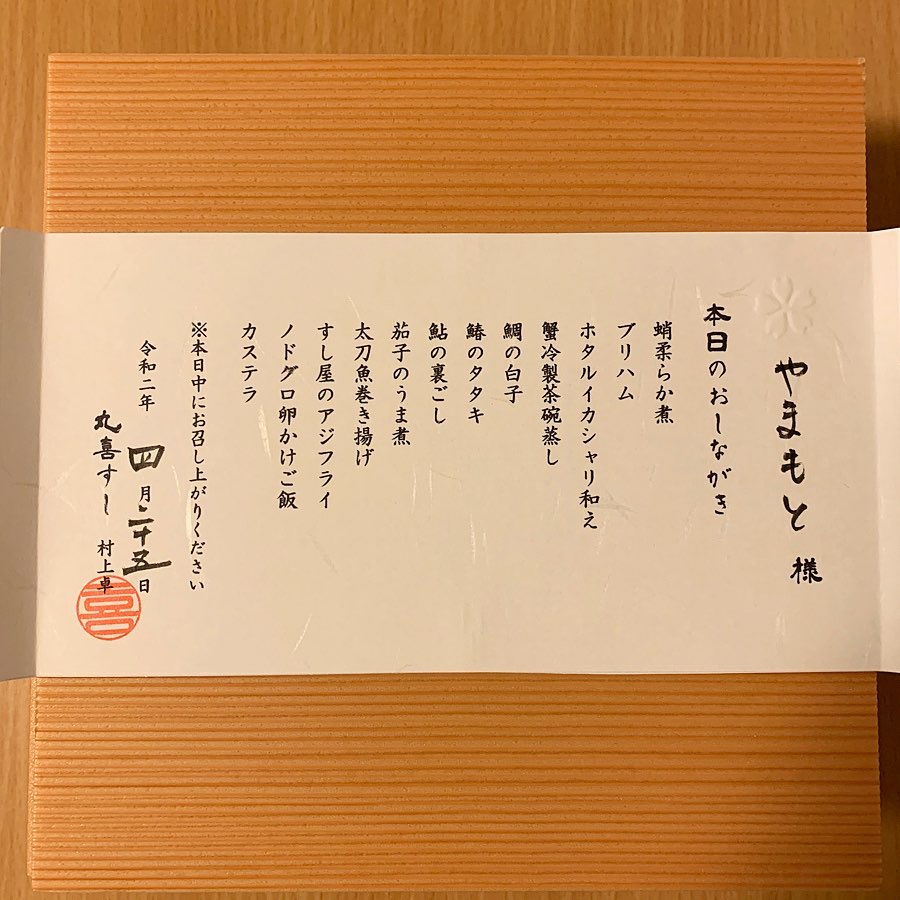 やまもと 様
本日のおしながき
蛸柔らか煮
ブリハム
ホタルイカシャリ和え
蟹冷製茶碗蒸し
鯛の白子
鰆のタタキ
鮎の裏ごし
茄子のうま煮
太刀魚巻き揚げ
すし屋のアジフライ
ノドグロ卵かけご飯
カステラ
※本日中にお召し上がりください
令和二年 四月二十五日
丸喜すし 村上卓
喜